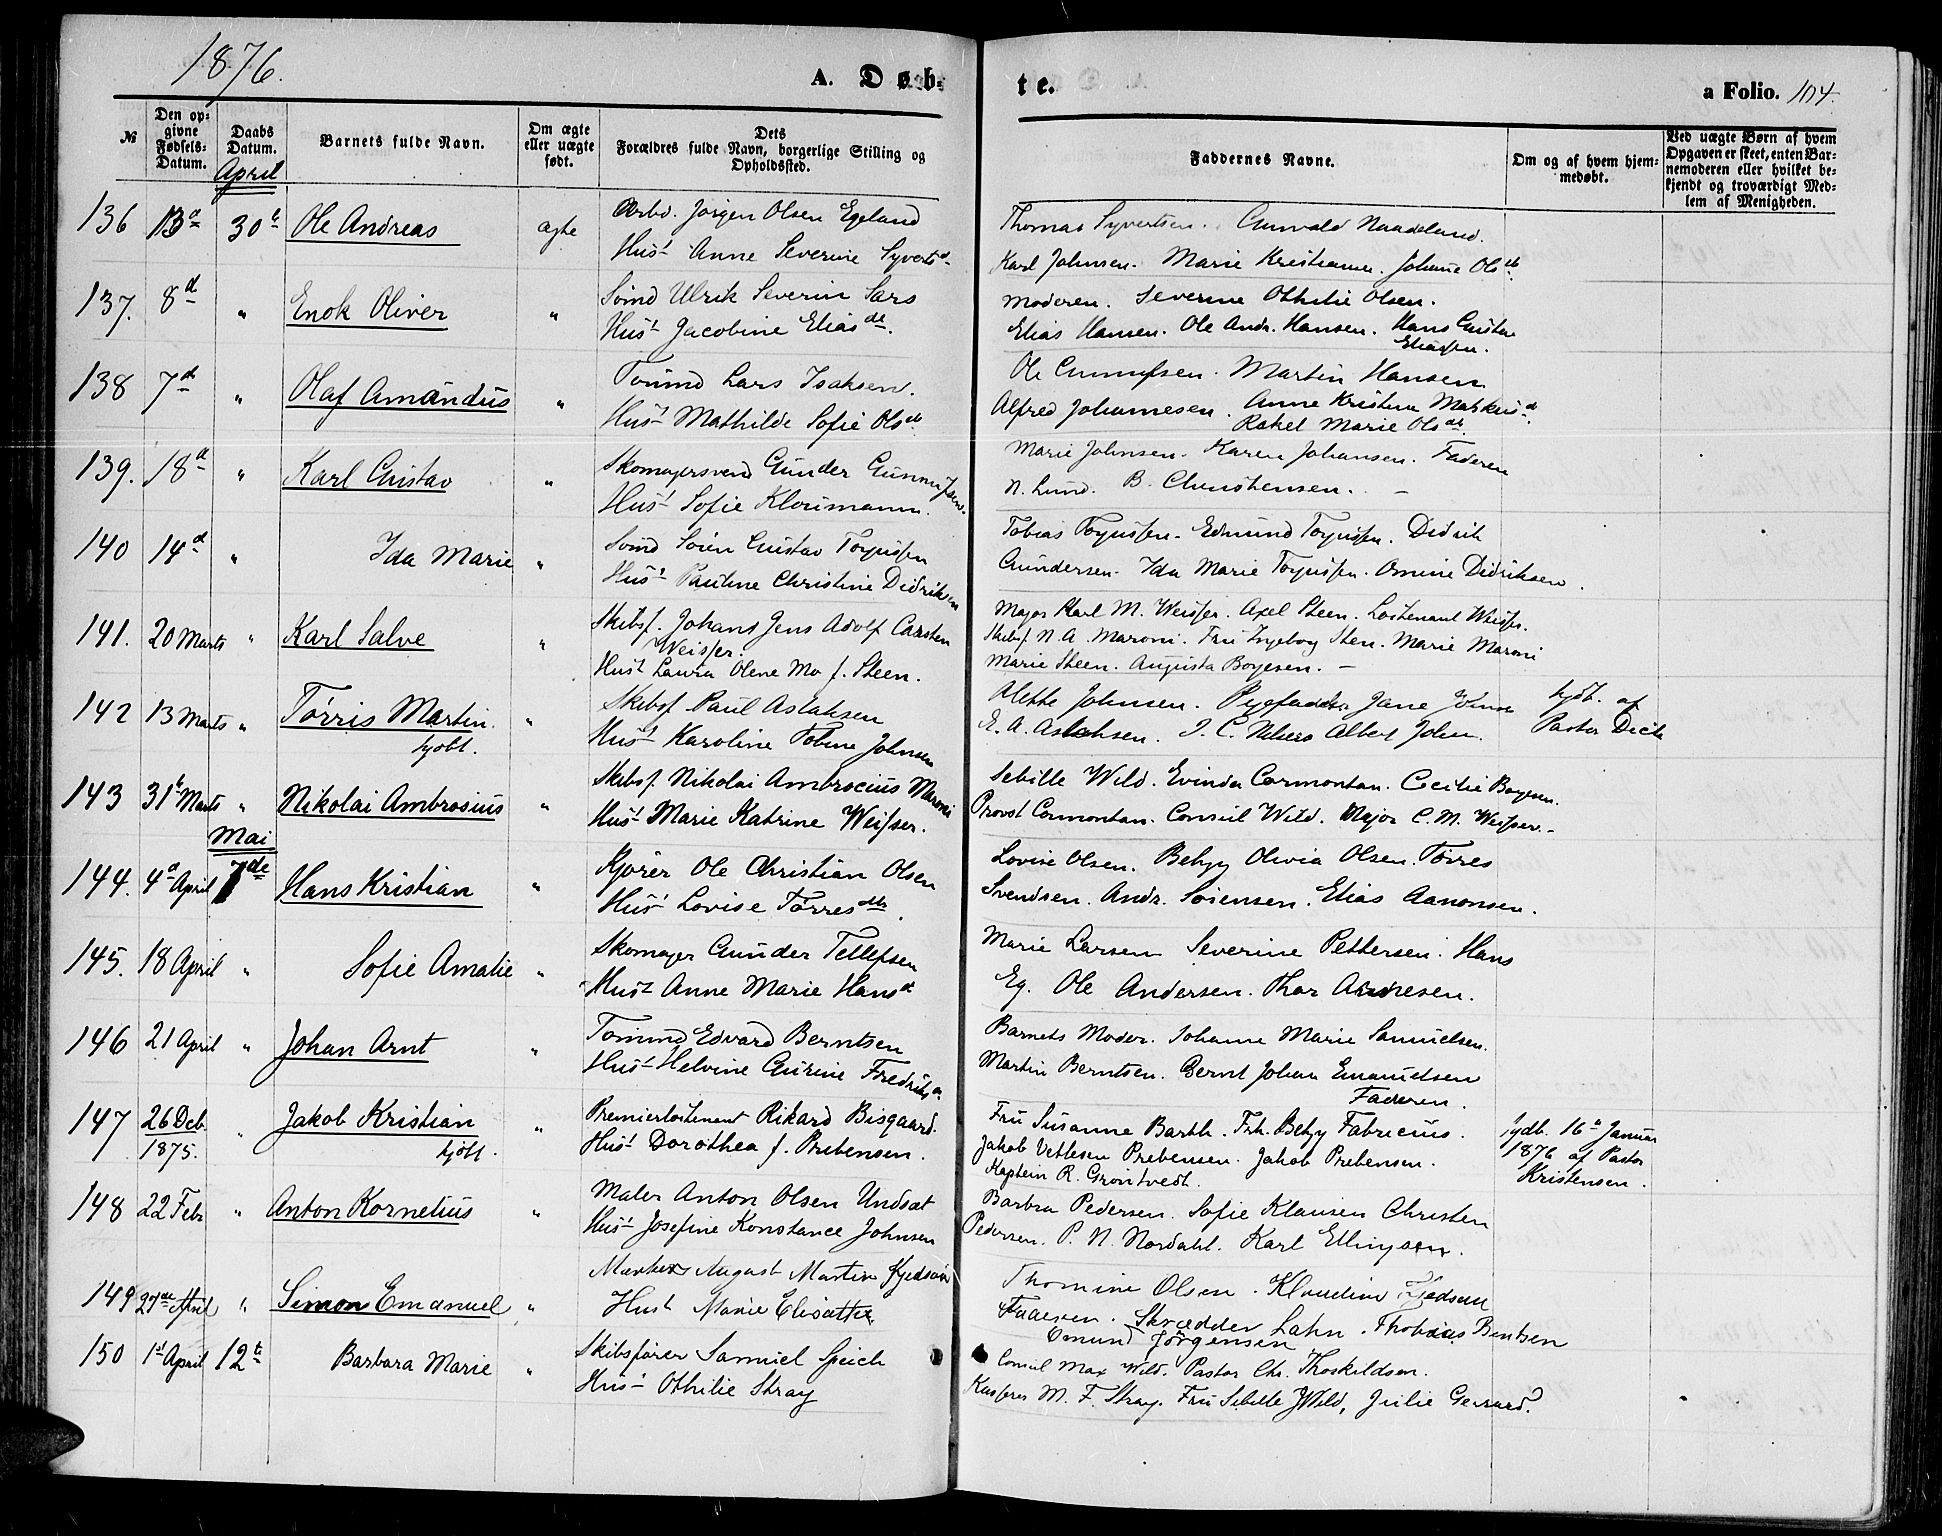 1876.
A. Døb=
te.
a Folio. 104.
№
Den op=
givne
Fødsels=
Datum.
Daabs
Datum.
April
Barnets fulde Navn.
Om ægte
eller uægte
født.
Dets
Forældres fulde Navn, borgerlige Stilling og
Opholdssted.
Faddernes Navne.
Om og af hvem hjem=
medøbt.
Ved uægte Børn af hvem
Opgaven er skeet, enten Bar=
nemoderen eller hvilket be=
kjendt og troværdigt Med=
lem af Menigheden.
136 13d 30t Ole Andreas ægte Arbd. Jørgen Olsen Egeland
Hust Anne Severine Syvertsd
Thomas Syvertsen. Gunvald Naadeland.
Karl Johnsen. Marie Kristianne. Johanne Olsdt
137. 8d " Enok Oliver " Sømd Ulrik Severin Sars
Hust Jacobine Eliasdt.
Moderen. Severine Othilie Olsen.
Elias Hansen. Ole Andr. Hansen. Hans Gustav
Eliassen.
138 7d " Olaf Amandus " Tømmd Lars Isaksen.
Hust Mathilde Sofie Olsdt
Ole Gunnufsen. Martin Hansen
Alfred Johannesen. Anne Kristine Markusd.
Rakel Marie Olsdt.
139. 18d " Karl Gustav " Skomagersvend Gunder Gunnufsen.
Hust Sofie Kloumann.
Marie Johnsen. Karen Johansen. Faderen
N. Lund. B. Christensen. —
140 14d " Ida Marie " Sømd Søren Gustav Torjussen
Hust Pauline Christine Didriksen
Tobias Torjussen. Edmund Torjussen. Didrik
Gundersen. Ida Marie Torjussen. Omine Didriksen.
141. 20 Marts " Karl Salve " Skibsf. Johans Jens Adolf Carsten
Weisser.
Hust Laura Olene Mo f. Steen.
Major Karl M. Weisser. Axel Steen. Loitenant Weisser.
Skibsf N. A. Maroni. Fru Ingeborg Sten. Marie Maroni
Marie Steen. Augusta Boyesen. —
142 13 Marts " Tørris Martin. " Skibsf Paul Aslaksen
hjdbt. Hust Karoline Tobine Johnsen
Alette Johnsen. Jane
E. A. Aslaksen. Albert John.
hjdbt. af
Pastor
143 31t Marts " Nikolai Ambrosius " Skibsf. Nikolai Ambrocius Maroni
Hust Marie Katrine Weisser.
Sebille Wild. Evinda Cormontan. Cecilie Boyesen.
Provst Cormontan. Consul Wild. Major C. M. Weisser.
Mai
144. 4d April 7de Hans Kristian " Kjører Ole Christian Olsen
Hust Lovise Tørresdtr.
Lovise Olsen. Betzy Olivia Olsen. Tørres
Svendsen. Andr. Sørensen. Elias Aanonsen.
145. 18 April " Sofie Amalie " Skomager Gunder Tellefsen
Hust Anne Marie Hansd
Marie Larsen Severine Pettersen. Hans
Eg. Ole Andersen. Thor Andresen.
146 21 April " Johan Arnt " Tømmd Edvard Berntsen
Hust Helvine Gurine Fredriksen
Barnets Moder. Johanne Marie Samuelsen.
Martin Berntsen. Bernt Johan Emanuelsen
Faderen.
147 26 Deb. 1875. " Jakob Kristian " Premierloitenant Rikard Bisgaard.
hjdbt. Hust Dorothea f. Prebensen.
Fru Susanne Barth. Frk. Betzy Fabricius.
Jakob Vetlesen Prebensen. Jakob Prebensen.
Kaptein R. Grøntvedt.
hjdb. 16d Januar
1876 af Pastor
Kristensen.
148 22 Febr " Anton Kornelius " Maler Anton Olsen Undsæt
Hust Josefine Konstance Johnsen
Barbra Pedersen. Sofie Klausen Christen
Pedersen. P. N. Nordahl. Karl Ellingsen.
149 27de April " Simon Emanuel " August Martin
Hust Marie Elisabeth
Thomine Olsen. Klaudine
Faderen. Skrædder Lahn. Thobias Bentsen
Omund Jørgensen
150 1st April 12t Barbara Marie " Skibsfører Samuel Speich
Hust Othilie Stray
Consul Max Wild. Pastor Chr. Thorkildsen.
Kasserer M. F. Stray. Fru Sibille Wild, Julie Gerrard.